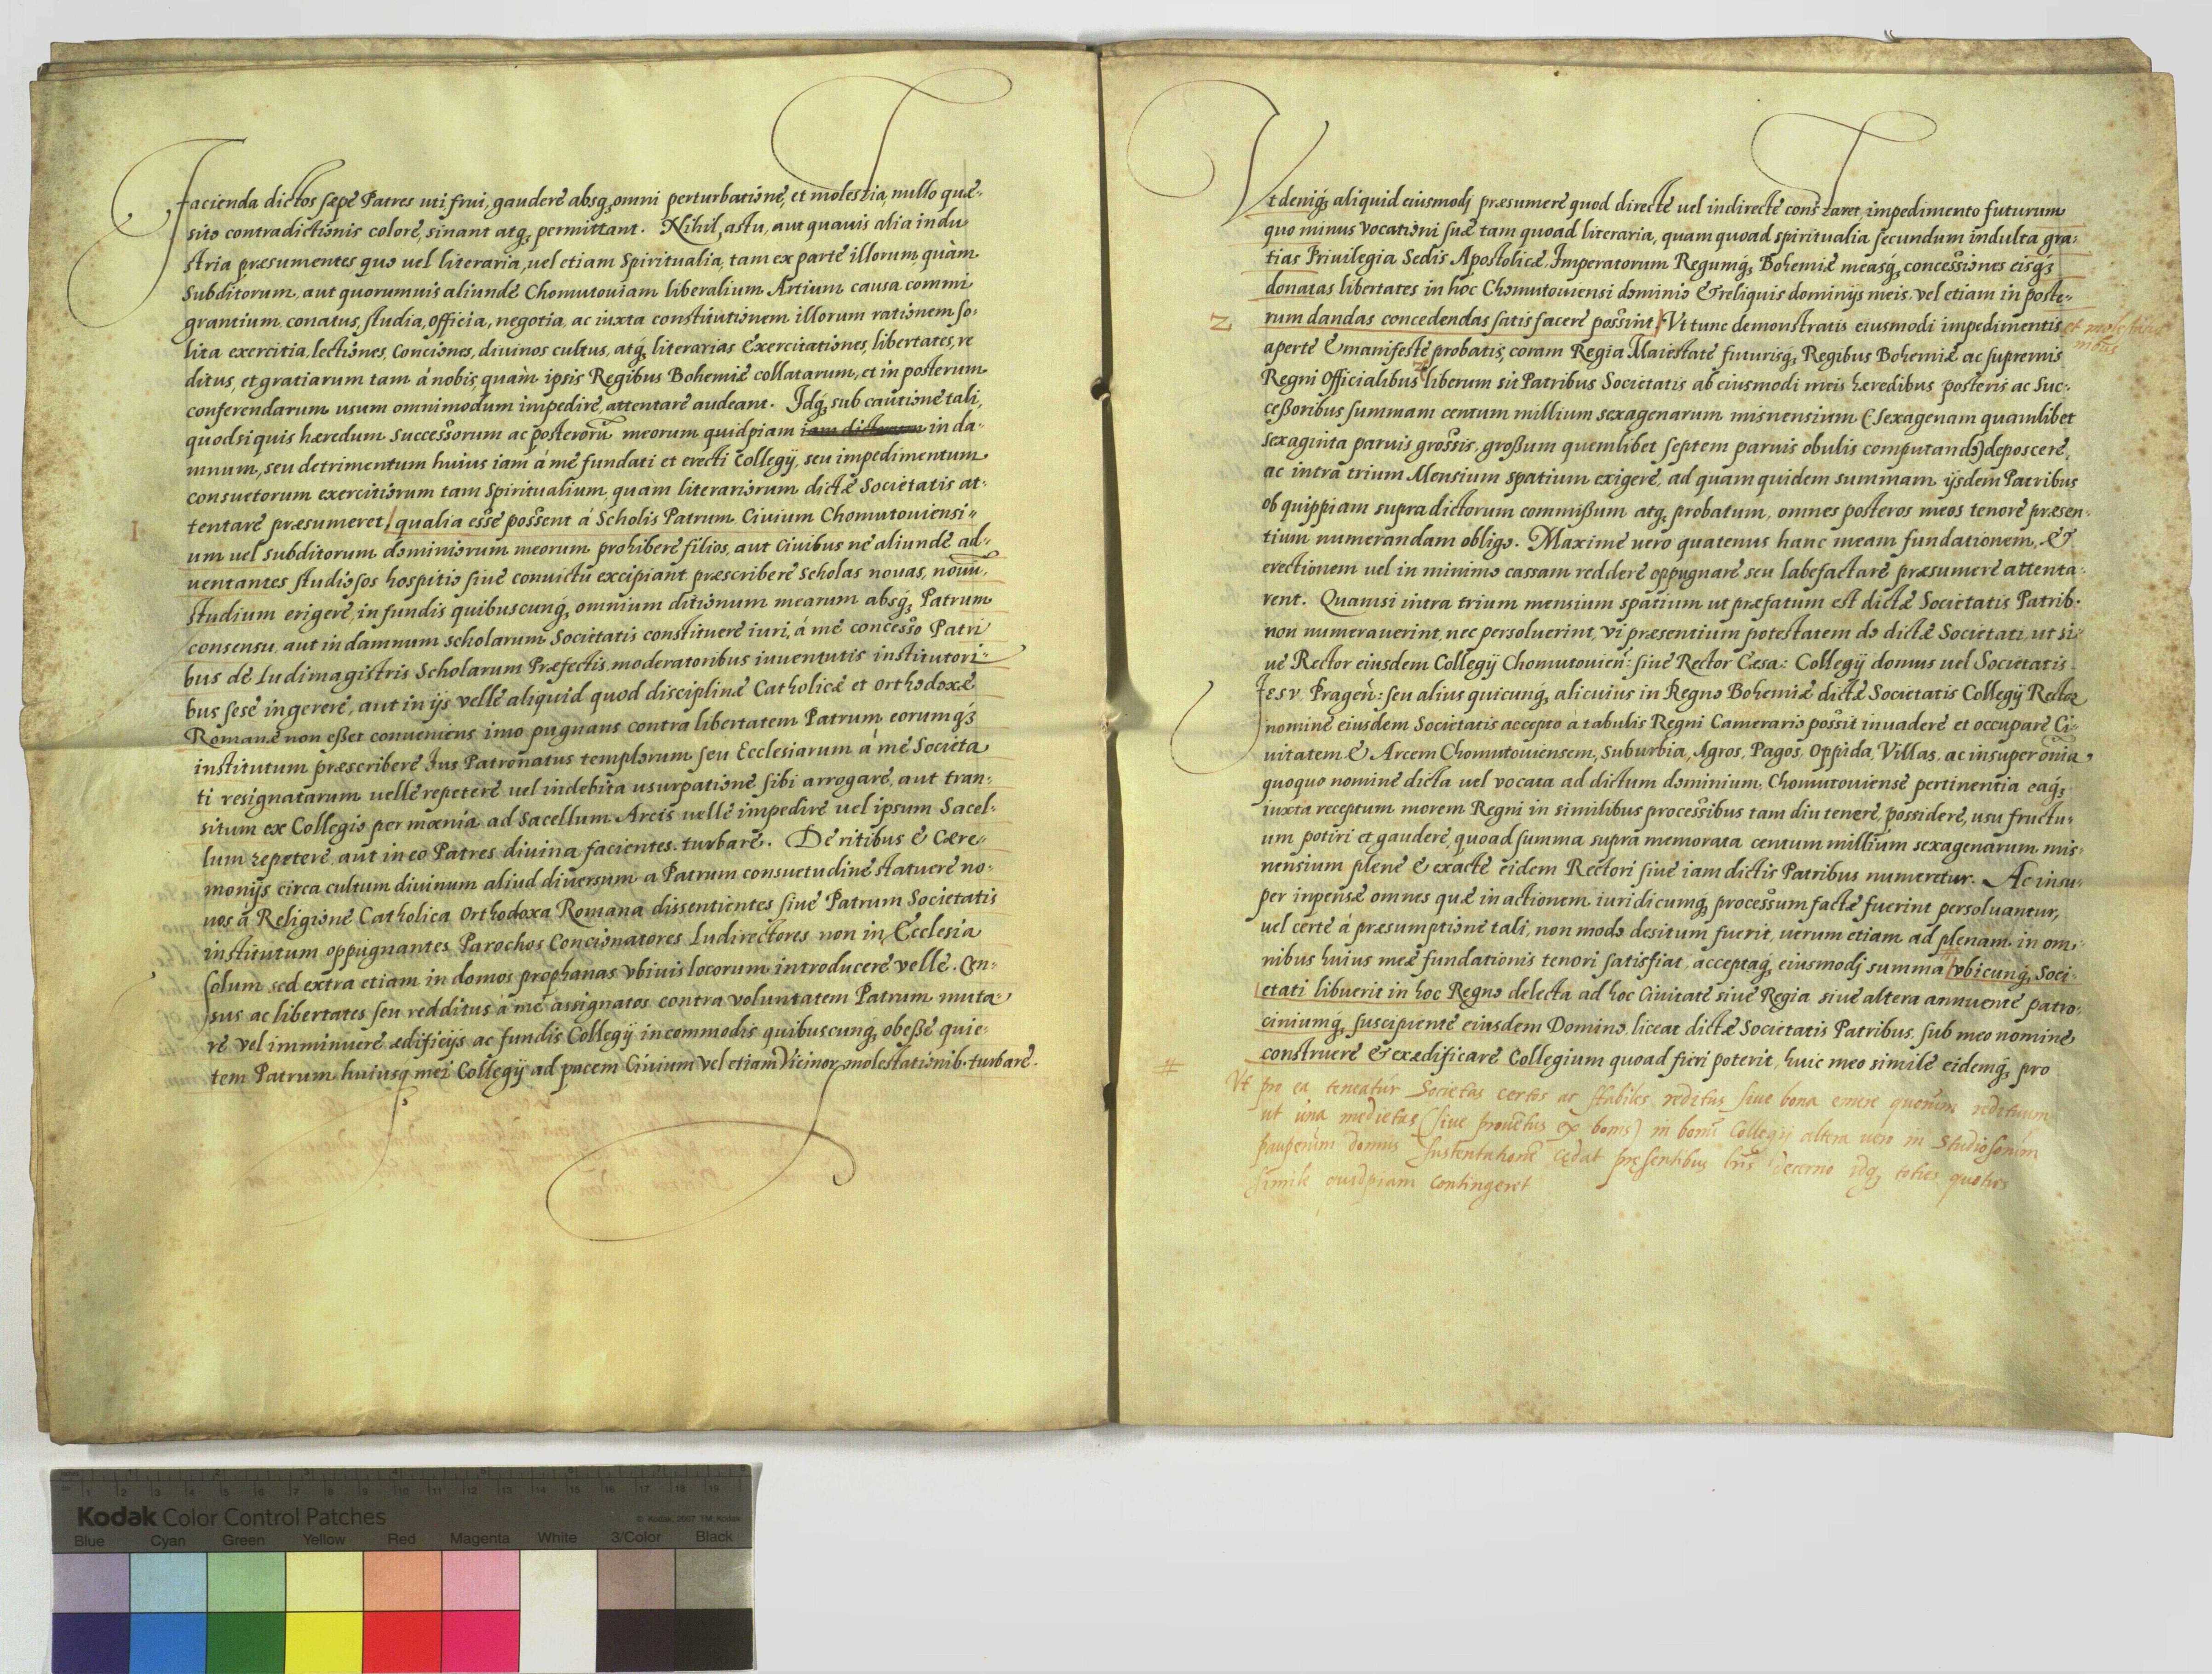 Facienda dictos sæpe Patres uti frui, gaudere absq; omni perturbatione, et molestia, nullo quæ-
sito contradictionis colore, sinant atq; permittant. Nihil, astu, aut quauis alia indu
stria præsumentes quo uel literaria, uel etiam Spiritualia, tam ex parte illorum, quàm
Subditorum, aut quorumuis aliunde Chomutouiam liberalium Artium causa commi
grantium, conatus, studia, officia, negotia, ac iuxta constitutionem illorum rationem so-
lita exercitia, lectiones, Conciones, diuinos cultus, atq; literarias Exercitationes, libertates, re
ditus, et gratiarum tam á nobis, quàm ipsis Regibus Bohemiæ collatarum, et in posterum
conferendarum usum omnimodum impedire, attentare audeant. Idq; sub cautione tali,
quodsi quis hæredum Successorum ac posterorũ meorum quidpiam in da-
mnum, seu detrimentum huius iam á me fundati et erecti Collegij, seu impedimentum
consuetorum exercitiorum tam Spiritualium, quam literariorum dictæ Societatis at-
tentare præsumeret, qualia esse possent á Scholis Patrum Ciuium Chomutouiensi-
um uel subditorum dominiorum meorum prohibere filios, aut Ciuibus ne aliunde ad-
uentantes studiosos hospitio siue conuictu excipiant præscribere Scholas nouas, nouũ
studium erigere, in fundis quibuscunq; omnium ditionum mearum absq; Patrum
consensu, aut in damnum scholarum Societatis constituere iuri, á me concesso Patri
bus de Ludimagistris Scholarum Præfectis, moderatoribus iuuentutis institutori-
bus sese ingerere, aut in ijs velle aliquid quod disciplinæ Catholicæ et Orthodoxæ
Romanæ non esset conueniens imo pugnans contra libertatem Patrum eorumq;
institutum præscribere Ius Patronatus templorum seu Ecclesiarum á me Societa
ti resignatarum uelle repetere uel indebita usurpatione sibi arrogare, aut tran-
situm ex Collegio per mœnia ad Sacellum Arcis uelle impedire uel ipsum Sacel-
lum repetere, aut in eo Patres diuina facientes turbare. De ritibus & Cære-
monijs circa cultum diuinum aliud diuersum a Patrum consuetudine statuere no-
uos á Religione Catholica Orthodoxa Romana dissentientes siue Patrum Societatis
institutum oppugnantes Parochos Concionatores Ludirectores non in Ecclesia
solum sed extra etiam in domos prophanas vbiuis locorum introducere velle. Cen-
sus ac libertates seu redditus á me assignatos contra voluntatem Patrum muta-
re vel imminuere ædificijs ac fundis Collegij incommodis quibuscunq; obesse quie-
tem Patrum huiusq; mei Collegij ad pacem Ciuium vel etiam Vicinor. molestationib. turbare.
I
Vt deniq; aliquid eiusmodj præsumere quod directe uel indirecte constaret, impedimento futurum
quo minus vocationi suæ tam quoad literaria, quam quoad spiritualia secundum indulta gra-
tias Priuilegia Sedis Apostolicæ, Imperatorum Regumq; Bohemiæ measq; concessiones eisq;
donatas libertates in hoc Chomutouiensi dominio & reliquis dominijs meis, vel etiam in poste-
rum dandas concedendas satisfacere possint. Vt tunc demonstratis eiusmodi impedimentis
aperte & manifeste probatis, coram Regia Maiestate futurisq; Regibus Bohemiæ ac supremis
Regni Officialibus liberum sit Patribus Societatis ab eiusmodi meis hæredibus posteris ac Suc-
cessoribus summam centum millium sexagenarum misnensium (Sexagenam quamlibet
sexaginta paruis grossis, grossum quemlibet septem paruis obulis computando) deposcere,
ac intra trium Mensium spatium exigere, ad quam quidem summam ijsdem Patribus
ob quippiam supra dictorum commissum atq; probatum, omnes posteros meos tenore præsen-
tium numerandam obligo. Maxime uero quatenus hanc meam fundationem, &
erectionem uel in minimo cassam reddere oppugnare seu labefactare præsumere attenta-
rent. Quamsi intra trium mensium spatium ut præfatum est dictæ Societatis Patrib.
non numerauerint, nec persoluerint, vi præsentium potestatem do dictæ Societati, ut si-
ue Rector eiusdem Collegij Chomutouień: siue Rector Cæsa: Collegij domus uel Societatis
Iesv Prageń: seu alius quicunq; alicuius in Regno Bohemiæ dictæ Societatis Collegij Rector
nomine eiusdem Societatis accepto a tabulis Regni Camerario possit inuadere et occupare Ci-
uitatem & Arcem Chomutouiensem, Suburbia, Agros, Pagos, Oppida, Villas, ac insuper omnia
quoquo nomine dicta uel vocata ad dictum dominium, Chomutouiense pertinentia eaq;
iuxta receptum morem Regni in similibus processibus tam diu tenere, possidere, usu fructu-
um potiri et gaudere, quoad summa supra memorata centum millium sexagenarum mis-
nensium plene & exacte eidem Rectori siue iam dictis Patribus numeretur. Ac insu-
per inpensæ omnes quæ in actionem iuridicumq; processum factæ fuerint persoluantur,
uel certe á præsumptione tali, non modo desitum fuerit, uerum etiam ad plenam in om-
nibus huius meæ fundationis tenori satisfiat, acceptaq; eiusmodj summa vbicunq; Soci-
etati libuerit in hoc Regno delecta ad hoc Ciuitate siue Regia siue altera annuente patro-
ciniumq; suscipiente eiusdem Domino, liceat dictæ Societatis Patribus, sub meo nomine
construere & exædificare Collegium quoad fieri poterit, huic meo simile eidemq; pro
2
#
Vt pro ea teneatur Societas certos ac stabiles reditus siue bona emere quorum redituum
ut una medietas (siue prouentus ex bonis) in bonũ Collegij altera uero in Studiosorum
pauperum domus sustentatione cedat præsentibus decerno idq; toties quoties
simile quidpiam contingeret
Kodak Color Control Patches
© Kodak, 2007 TM: Kodak
Blue Cyan Green Yellow Red Magenta White 3/Color Black